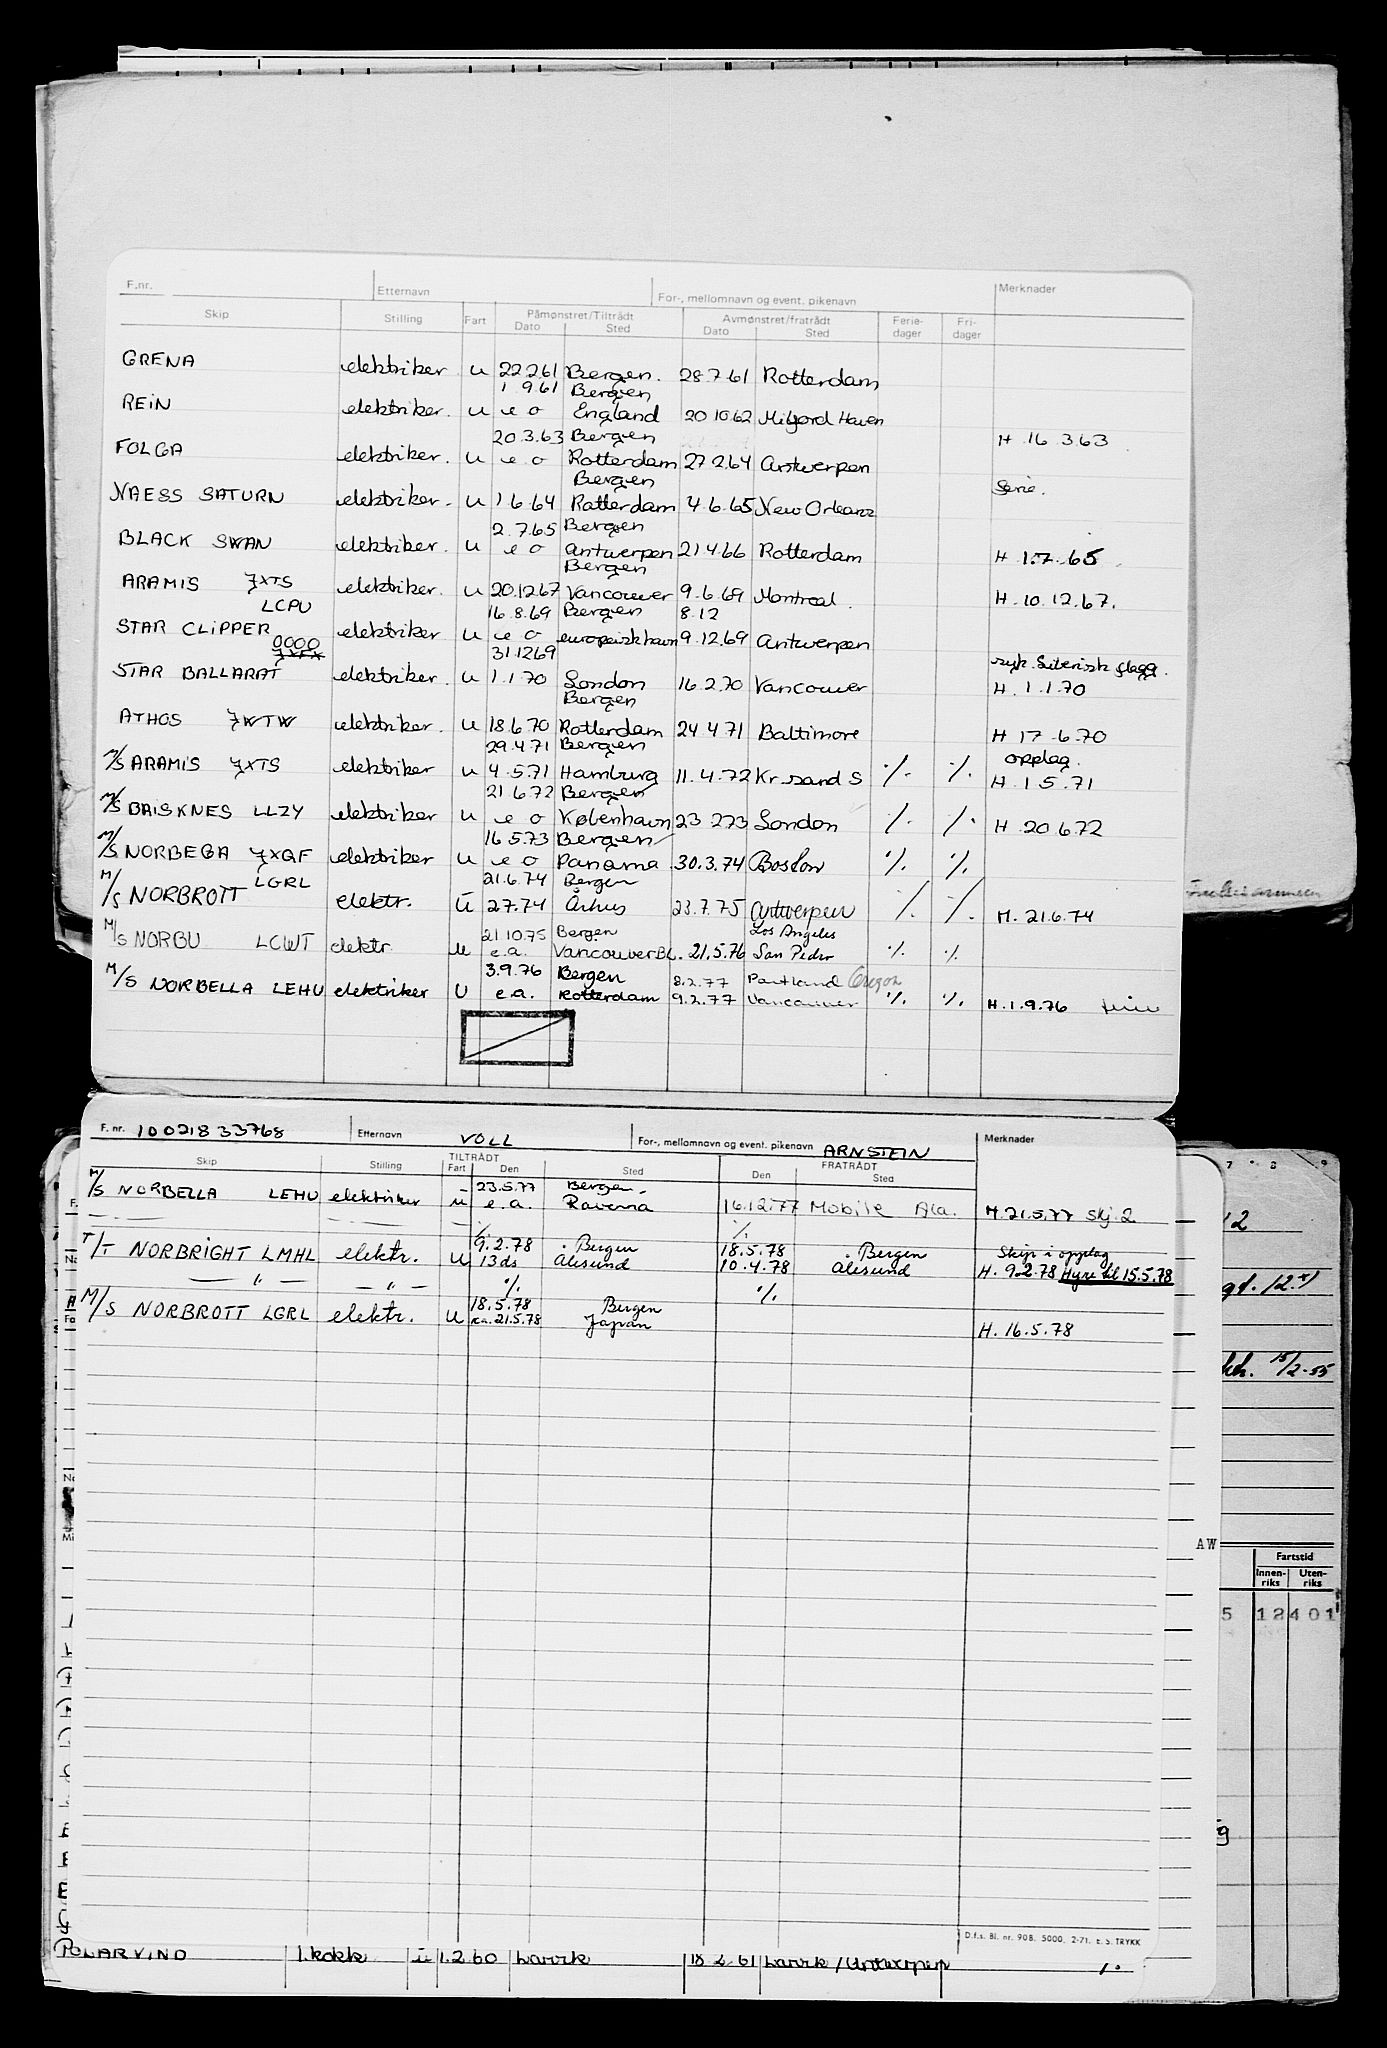 F.nr. Etternavn For-, mellomnavn og event. pikenavn Merknader
Skip Stilling Fart Påmønstret/Tiltrådt Avmønstret/fratrådt Ferie-dager Fri-dager
Dato Sted Dato Sted
GRENA elektriker u 22.2.61 Bergen. 28.7.61 Rotterdam
1.9.61 Bergen
REIN elektriker. u e o England 20.10.62 Milford Haven
20.3.63 Bergen H.16.3.63
FOLGA elektriker. u e o Rotterdam 27.2.64 Antwerpen
Bergen Serie.
NAESS SATURN elektriker. u 1.6.64 Rotterdam 4.6.65 New Orleans
2.7.65 Bergen
BLACK SWAN elektriker. u e o Antwerpen 21.4.66 Rotterdam H 1.7.65
Bergen
ARAMIS JXTS elektriker. u 20.12.67 Vancouver 9.6.69 Montreal. H.10.12.67.
LCPU 16.8.69 Bergen 8.12
STAR CLIPPER elektriker u e o europeisk havn 9.12.69 Antwerpen
0000 31.12.69
STAR BALLARAT elektriker. u 1.1.70 London 16.2.70 Vancouver H.1.1.70
Bergen
ATHOS JWTW elektriker. u 18.6.70 Rotterdam 24.4.71 Baltimore H 17.6.70
29.4.71 Bergen opplag.
M/S ARAMIS JXTS elektriker u 4.5.71 Hamburg 11.4.72 Kr.sand S ./. ./. H.1.5.71
21.6.72 Bergen
M/S BRISKNES LLZY elektriker u e o København 23.2.73 London ./. ./. H.20.6.72
16.5.73 Bergen
M/S NORBEGA JXQF elektriker u e o Panama 30.3.74 Boston ./. ./.
LGRL 21.6.74 Bergen
M/S NORBROTT elektr. u 2.7.74 Århus 23.7.75 Antwerpen ./. ./. M.21.6.74
21.10.75 Bergen Los Angeles
M/S NORBU LCWT elektr. u e.a. Vancouver 21.5.76 San Pedro ./. ./.
3.9.76 Bergen 8.2.77 Portland Oregon
M/S NORBELLA LEHU elektriker U e.a. Rotterdam 9.2.77 Vancouver ./. ./. H.1.9.76
F.nr. 100218 33768 Etternavn VOLL For-, mellomnavn og event. pikenavn ARNSTEIN Merknader
TILTRÅDT FRATRÅDT
Skip Stilling Fart Den Sted Den Sted
23.5.77 Bergen.
M/S NORBELLA LEHU elektriker u e.a. Ravenna 16.12.77 Mobile Ala. M.21.5.77 skj.2
./. ./.
9.2.78 Bergen 18.5.78 Bergen Skip i opplag
T/T NORBRIGHT LMHL elektr. U 13 ds Ålesund 10.4.78 Ålesund H. 9.2.78 Hyre til 15.5.78
— " — — " — ./. ./.
18.5.78 Bergen
M/S NORBROTT LGRL elektr. U ca. 21.5.78 Japan H. 16.5.78
D.f.s. Bl. nr. 908. 5000. 2-71. E.S. TRYKK
POLARVIND 1.kokk u 1.2.60 Larvik 18.2.61 Larvik / Antwerpen
15/2-55
AW
Fartstid
Innen-riks Uten-riks
5 12401